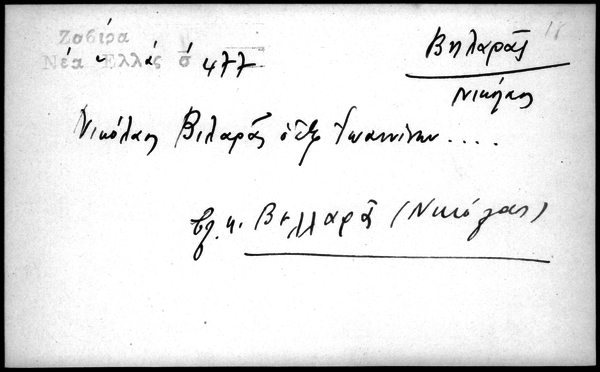 Ζαβίρα
Νέα Ἑλλάς σ 477
Βηλαρᾶς
Νικόλαος
Νικόλαος Βιλαρᾶς ὁ ἐξ Ἰωαννίνων....
βλ. κ. Βηλλαρᾶ (Νικόλαος)